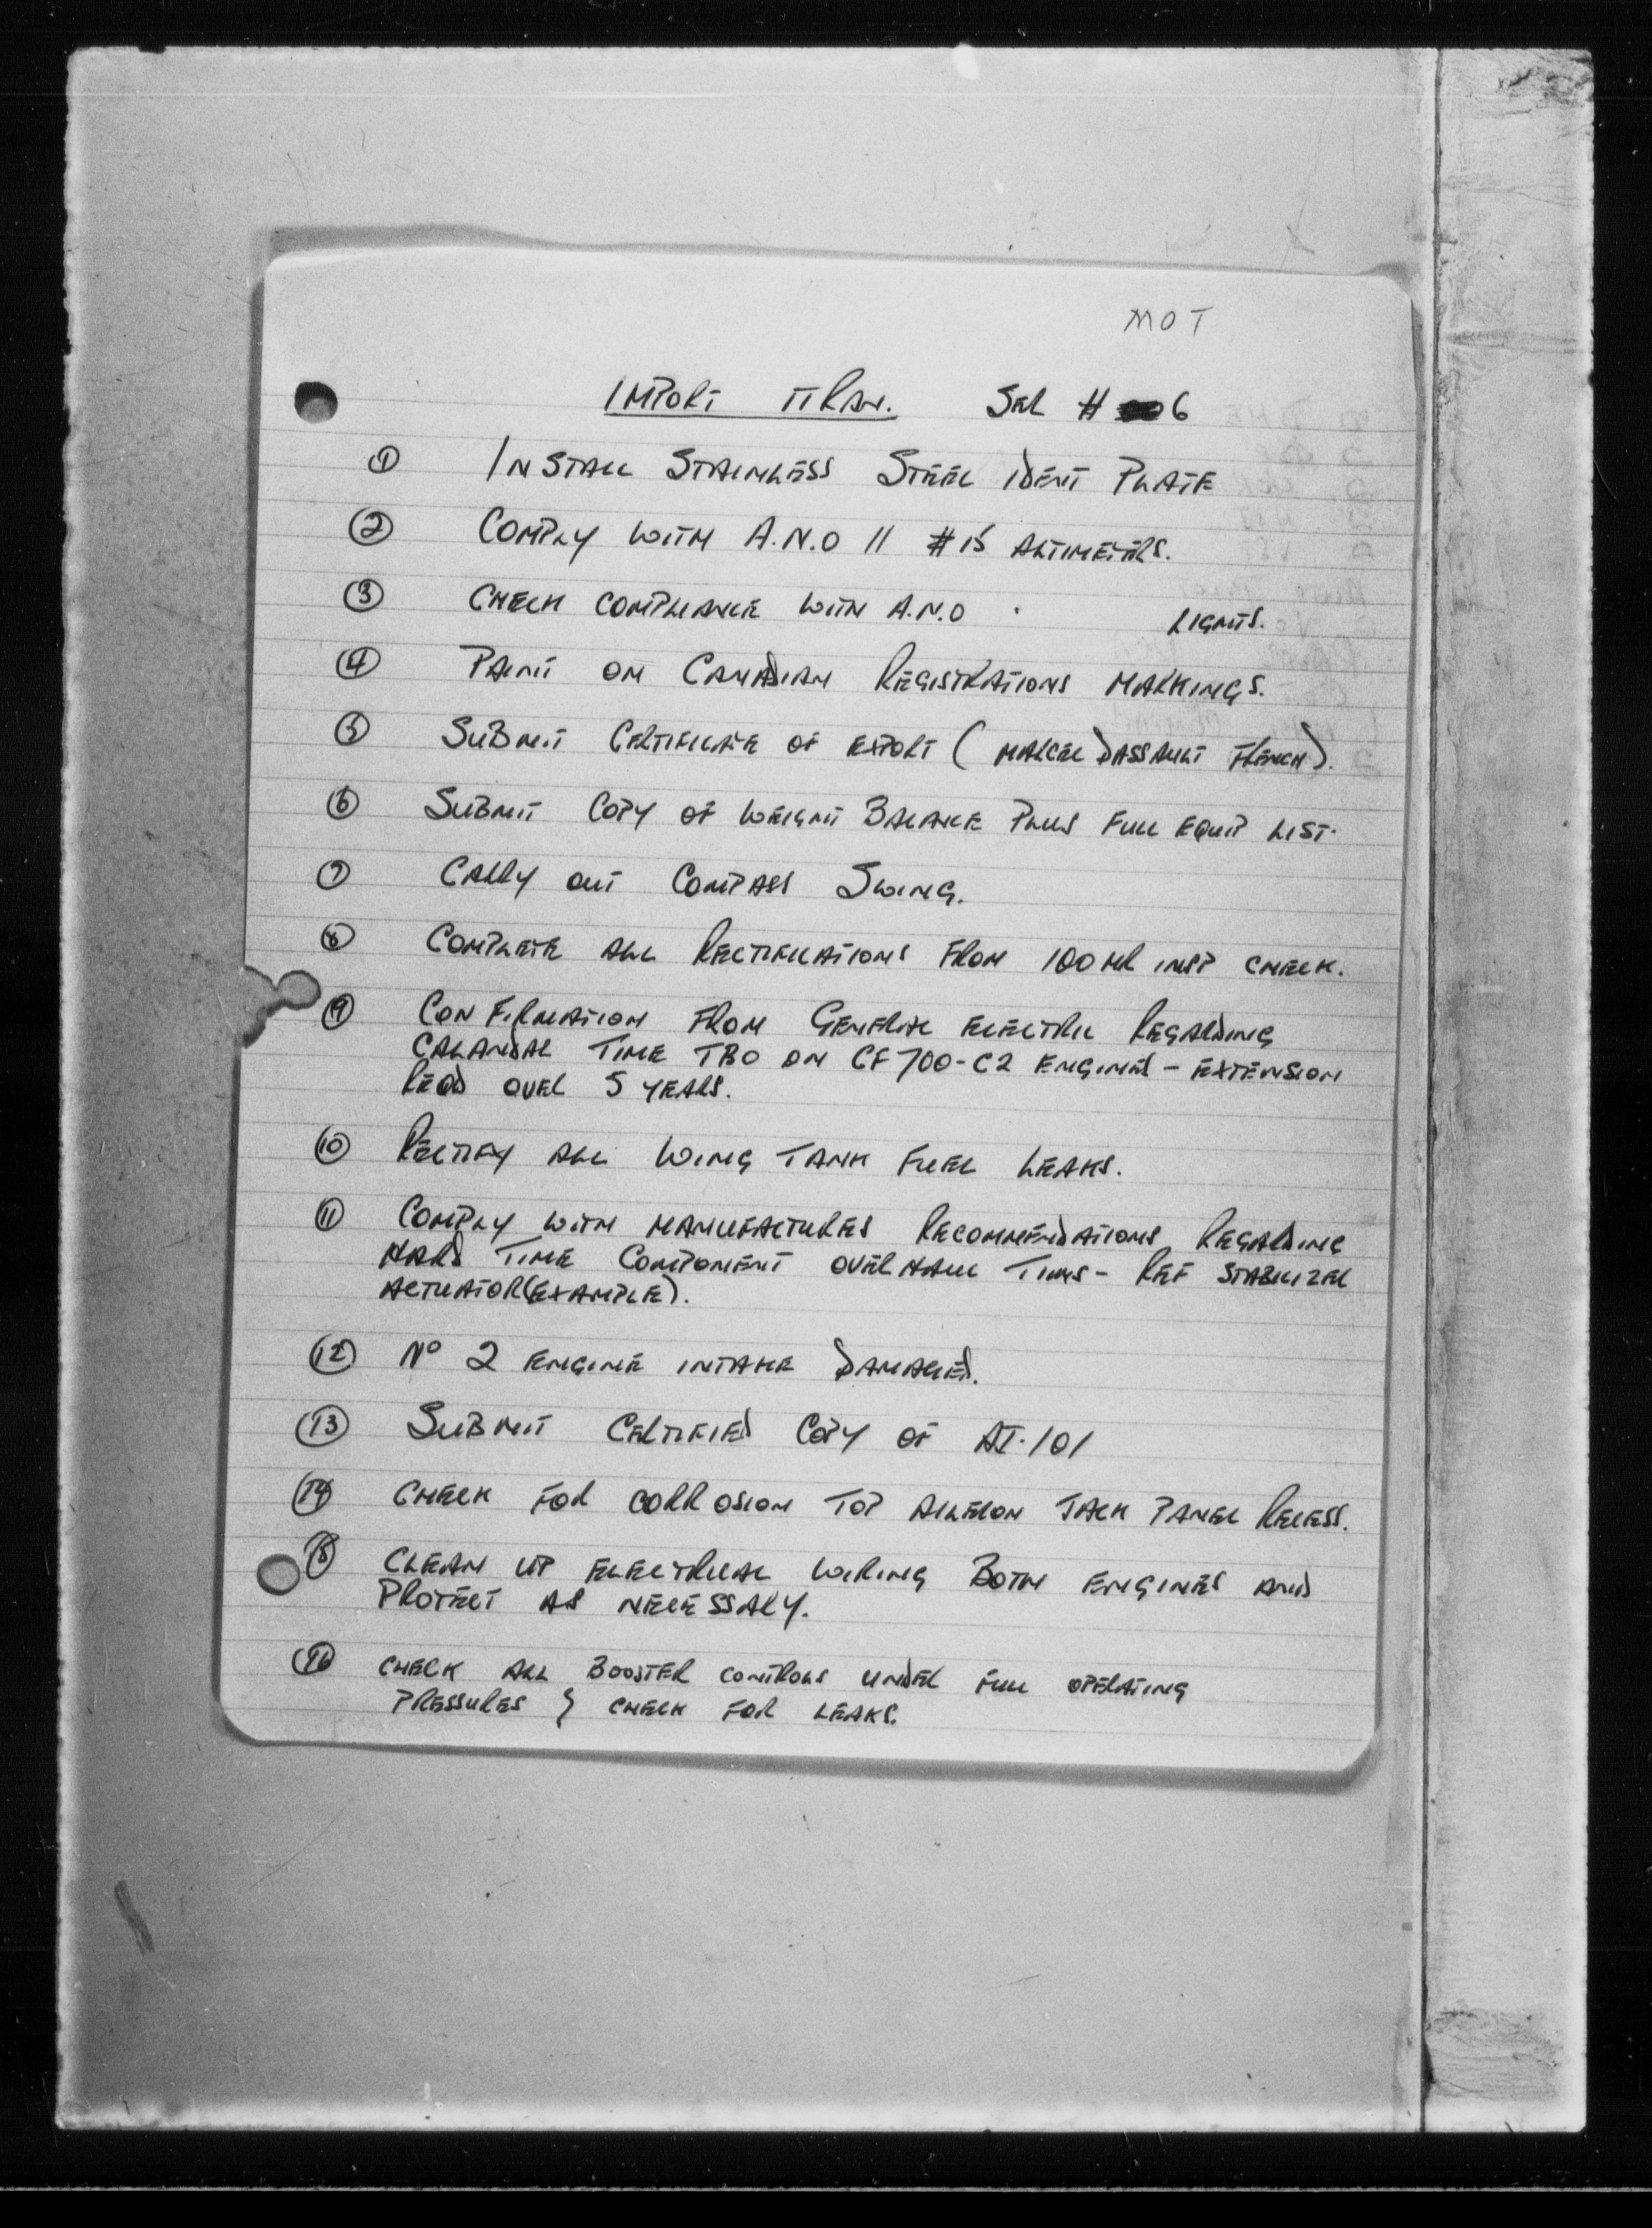 MOT
IMPORT FRAN. SER # 6
① INSTALL STAINLESS STEEL IDENT PLATE
② COMPLY WITH A.N.O II #15 ALTIMETERS.
③ CHECK COMPLIANCE WITH A.N.O . LIGHTS.
④ PAINT ON CANADIAN REGISTRATIONS MARKINGS.
⑤ SUBMIT CERTIFICATE OF EXPORT (MARCEL DASSAULT FRENCH).
⑥ SUBMIT COPY OF WEIGHT BALANCE PLUS FULL EQUIP LIST.
⑦ CARRY OUT COMPASS SWING.
⑧ COMPLETE ALL RECTIFICATIONS FROM 100 HR INSP CHECK.
⑨ CONFIRMATION FROM GENERAL ELECTRIC REGARDING
CALANDAR TIME TBO ON CF700-C2 ENGINES - EXTENSION
REQD OVER 5 YEARS.
⑩ RECTIFY ALL WING TANK FUEL LEAKS.
⑪ COMPLY WITH MANUFACTURES RECOMMENDATIONS REGARDING
HARD TIME COMPONENT OVERHAUL TIMES - REF STABILIZER
ACTUATOR (EXAMPLE).
⑫ Nº 2 ENGINE INTAKE DAMAGED.
⑬ SUBMIT CERTIFIED COPY OF AI.101
⑭ CHECK FOR CORROSION TOP AILERON JACK PANEL RECESS.
⑮ CLEAN UP ELECTRICAL WIRING BOTH ENGINES AND
PROTECT AS NECESSARY.
⑯ CHECK ALL BOOSTER CONTROLS UNDER FULL OPERATING
PRESSURES & CHECK FOR LEAKS.